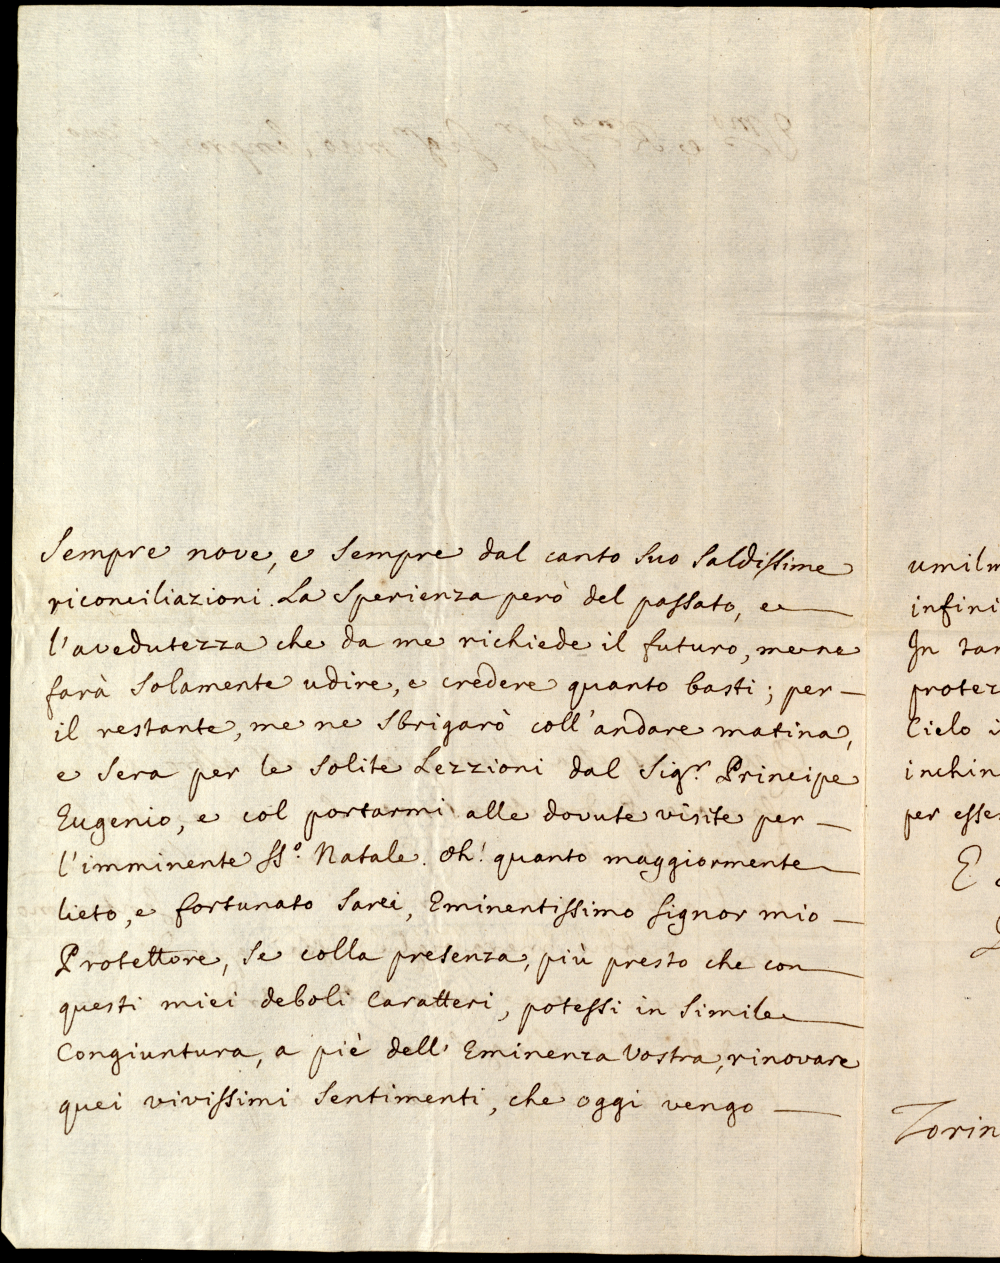 Sempre nove, e sempre dal canto suo saldissime
riconciliazioni. La sperienza però del passato, e
l'avedutezza che da me richiede il futuro, me ne
farà solamente udire, e credere quanto basti; per
il restante, me ne sbrigarò coll'andare matina,
e sera per le solite Lezzioni dal Sig.r Principe
Eugenio, e col portarmi alle dovute visite per
l'imminente SS.º Natale. Oh! quanto maggiormente
lieto, e fortunato sarei, Eminentissimo Signor mio
Protettore, se colla presenza, più presto che con
questi miei deboli Caratteri, potessi in simile
Congiuntura, a piè dell'Eminenza Vostra, rinovare
quei vivissimi sentimenti, che oggi vengo
umilm
infini
In tan
protez
Cielo i
inchin
per esse
E
Torin